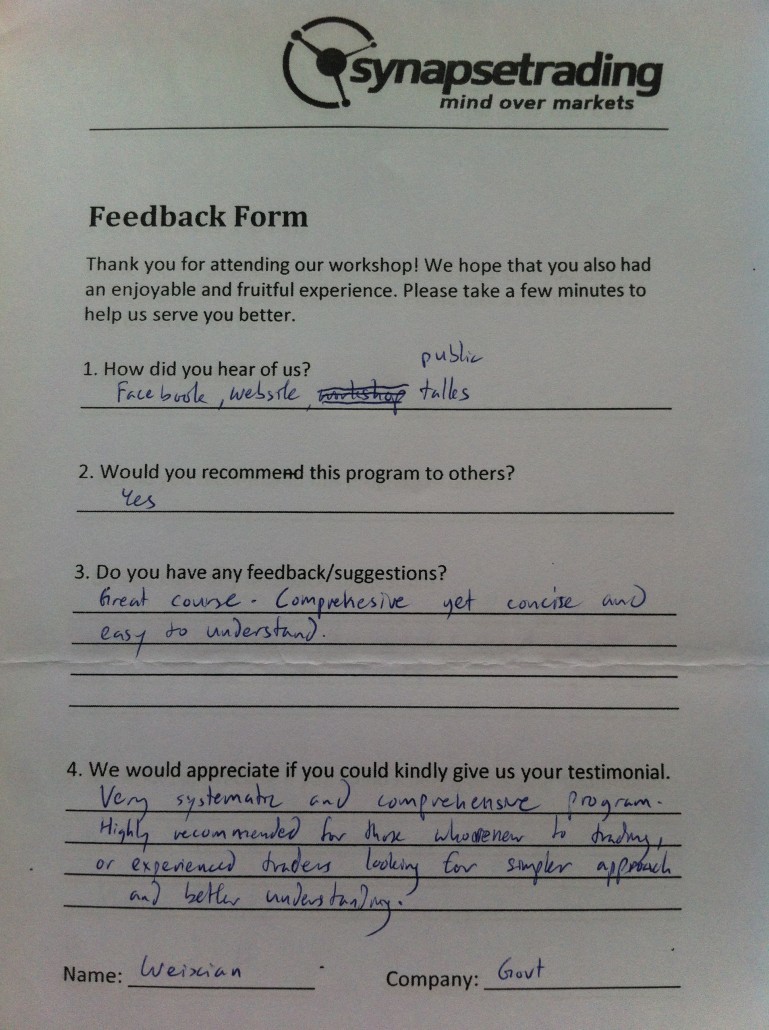 synapsetrading
mind over markets
Feedback Form
Thank you for attending our workshop! We hope that you also had
an enjoyable and fruitful experience. Please take a few minutes to
help us serve you better.
1. How did you hear of us?
public
Facebook, website, workshop talks
2. Would you recommend this program to others?
Yes
3. Do you have any feedback/suggestions?
Great course. Comprehesive yet concise and
easy to understand.
4. We would appreciate if you could kindly give us your testimonial.
Very systematic and comprehensive program.
Highly recommended for those who are new to trading,
or experienced traders looking for simpler approach
and better understanding.
Name: Weixian Company: Govt